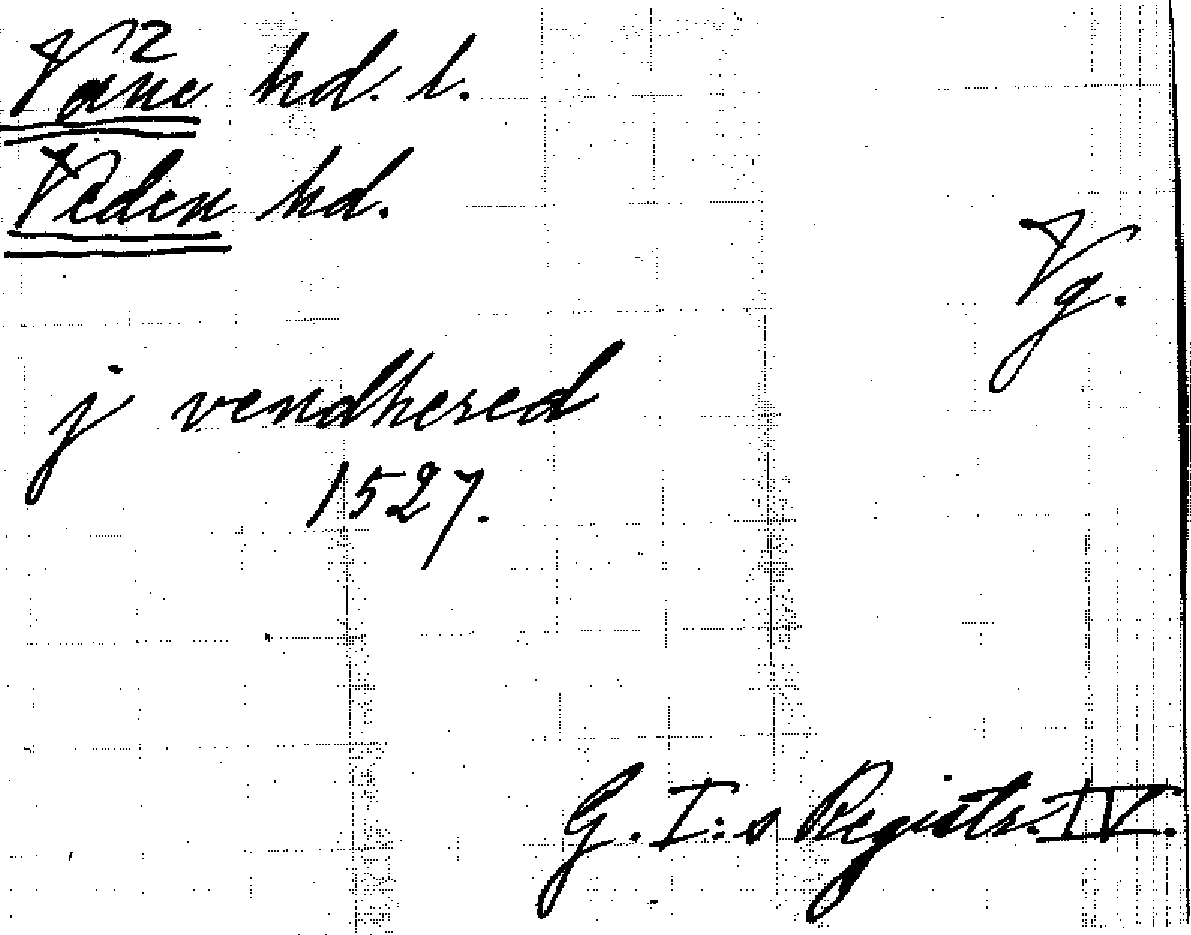 Väne hd. l.
Veden hd.
Vg.
j vendhered
1527.
G. I:s Registr. IV.